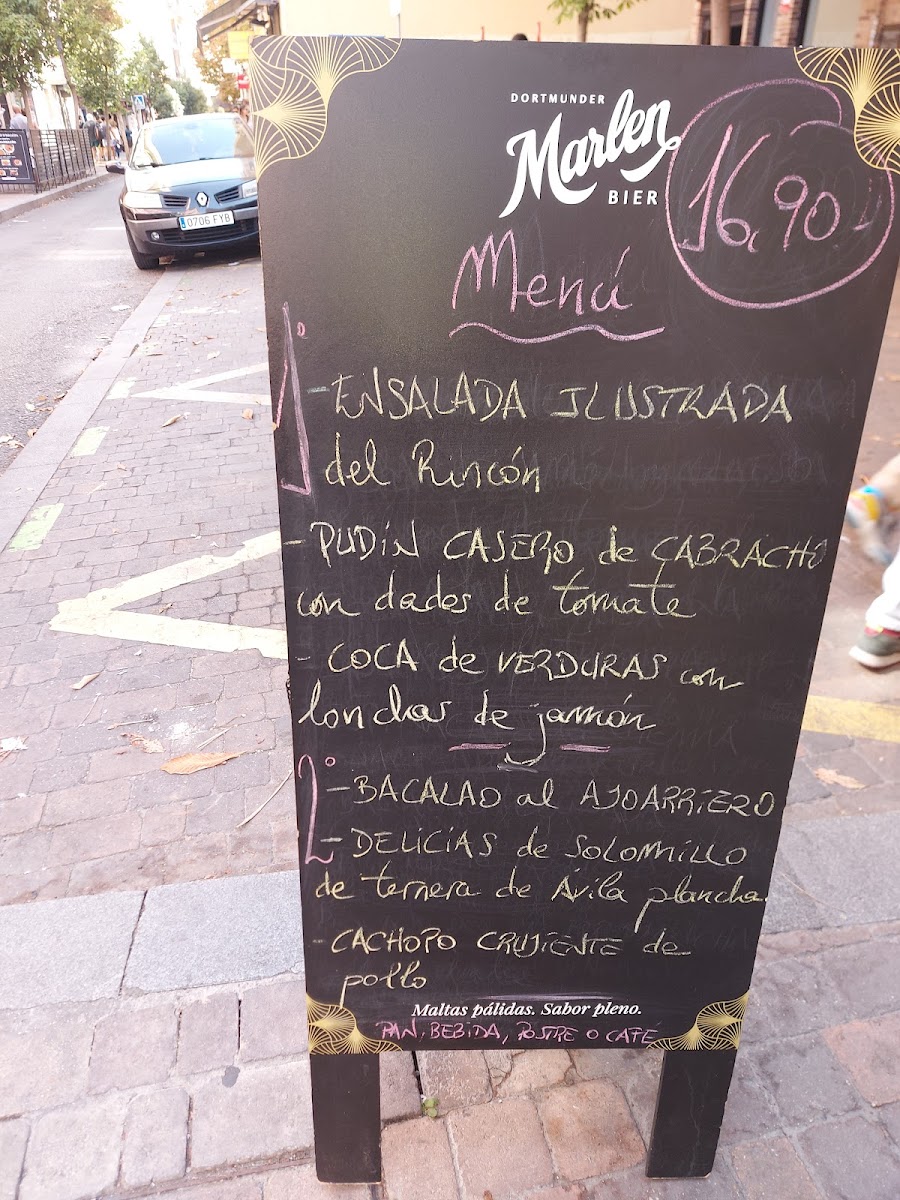 DORTMUNDER
Marlen
BIER
16,90
Menú
1º
- ENSALADA ILUSTRADA
del Rincón
- PUDIN CASERO de CABRACHO
con dados de tomate
- COCA de VERDURAS con
lonchas de jamón
2º
- BACALAO al AJOARRIERO
- DELICIAS de SOLOMILLO
de ternera de Ávila plancha
- CACHOPO CRUJIENTE de
pollo
Maltas pálidas. Sabor pleno.
PAN, BEBIDA, POSTRE O CAFÉ
0706 FYB